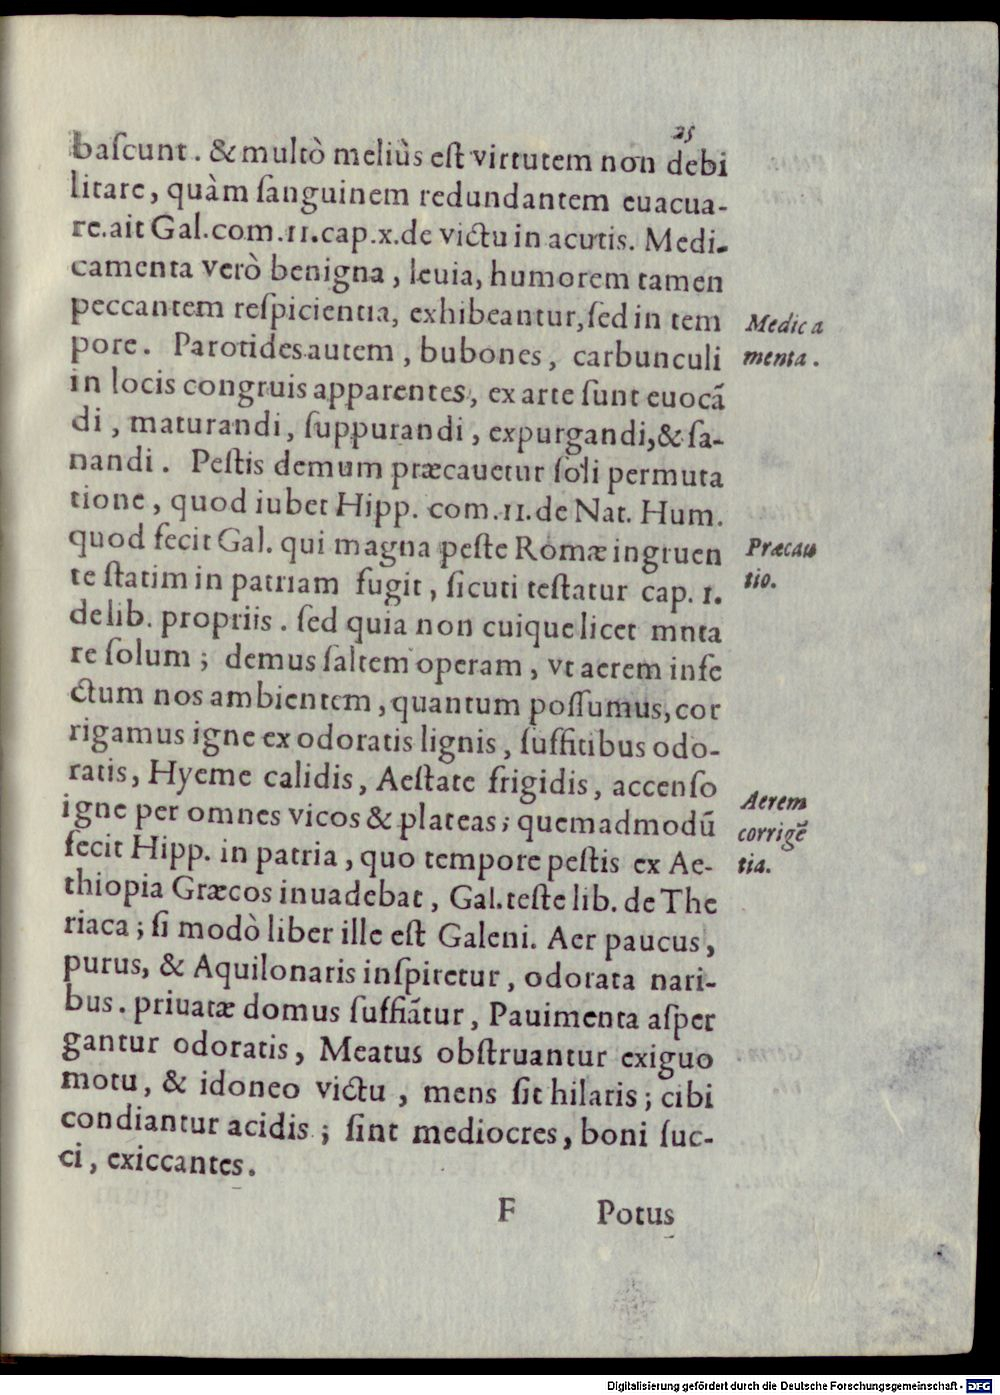 25
baſcunt. & multò meliùs eſt virtutem non debi
litare, quàm ſanguinem redundantem euacua-
re. ait Gal. com. 11. cap. x. de victu in acutis. Medi-
camenta verò benigna, leuia, humorem tamen
peccantem reſpicientia, exhibeantur, ſed in tem
pore. Parotides autem, bubones, carbunculi
in locis congruis apparentes, ex arte ſunt euocã
di, maturandi, ſuppurandi, expurgandi, & ſa-
nandi. Peſtis demum præcauetur ſoli permuta
tione, quod iubet Hipp. com. 11. de Nat. Hum.
quod fecit Gal. qui magna peſte Romæ ingruen
te ſtatim in patriam fugit, ſicuti teſtatur cap. 1.
de lib. propriis. ſed quia non cuique licet mnta
re ſolum; demus ſaltem operam, vt aerem infe
ctum nos ambientem, quantum poſſumus, cor
rigamus igne ex odoratis lignis, ſuffitibus odo-
ratis, Hyeme calidis, Aeſtate frigidis, accenſo
igne per omnes vicos & plateas; quemadmodũ
fecit Hipp. in patria, quo tempore peſtis ex Ae-
thiopia Græcos inuadebat, Gal. teſte lib. de The
riaca; ſi modò liber ille eſt Galeni. Aer paucus,
purus, & Aquilonaris inſpiretur, odorata nari-
bus. priuatæ domus ſuffiãtur, Pauimenta aſper
gantur odoratis, Meatus obſtruantur exiguo
motu, & idoneo victu, mens ſit hilaris; cibi
condiantur acidis; ſint mediocres, boni ſuc-
ci, exiccantes.
F Potus
Medica
menta.
Præcau
tio.
Aerem
corrigẽ
tia.
Digitalisierung gefördert durch die Deutsche Forschungsgemeinschaft - DFG